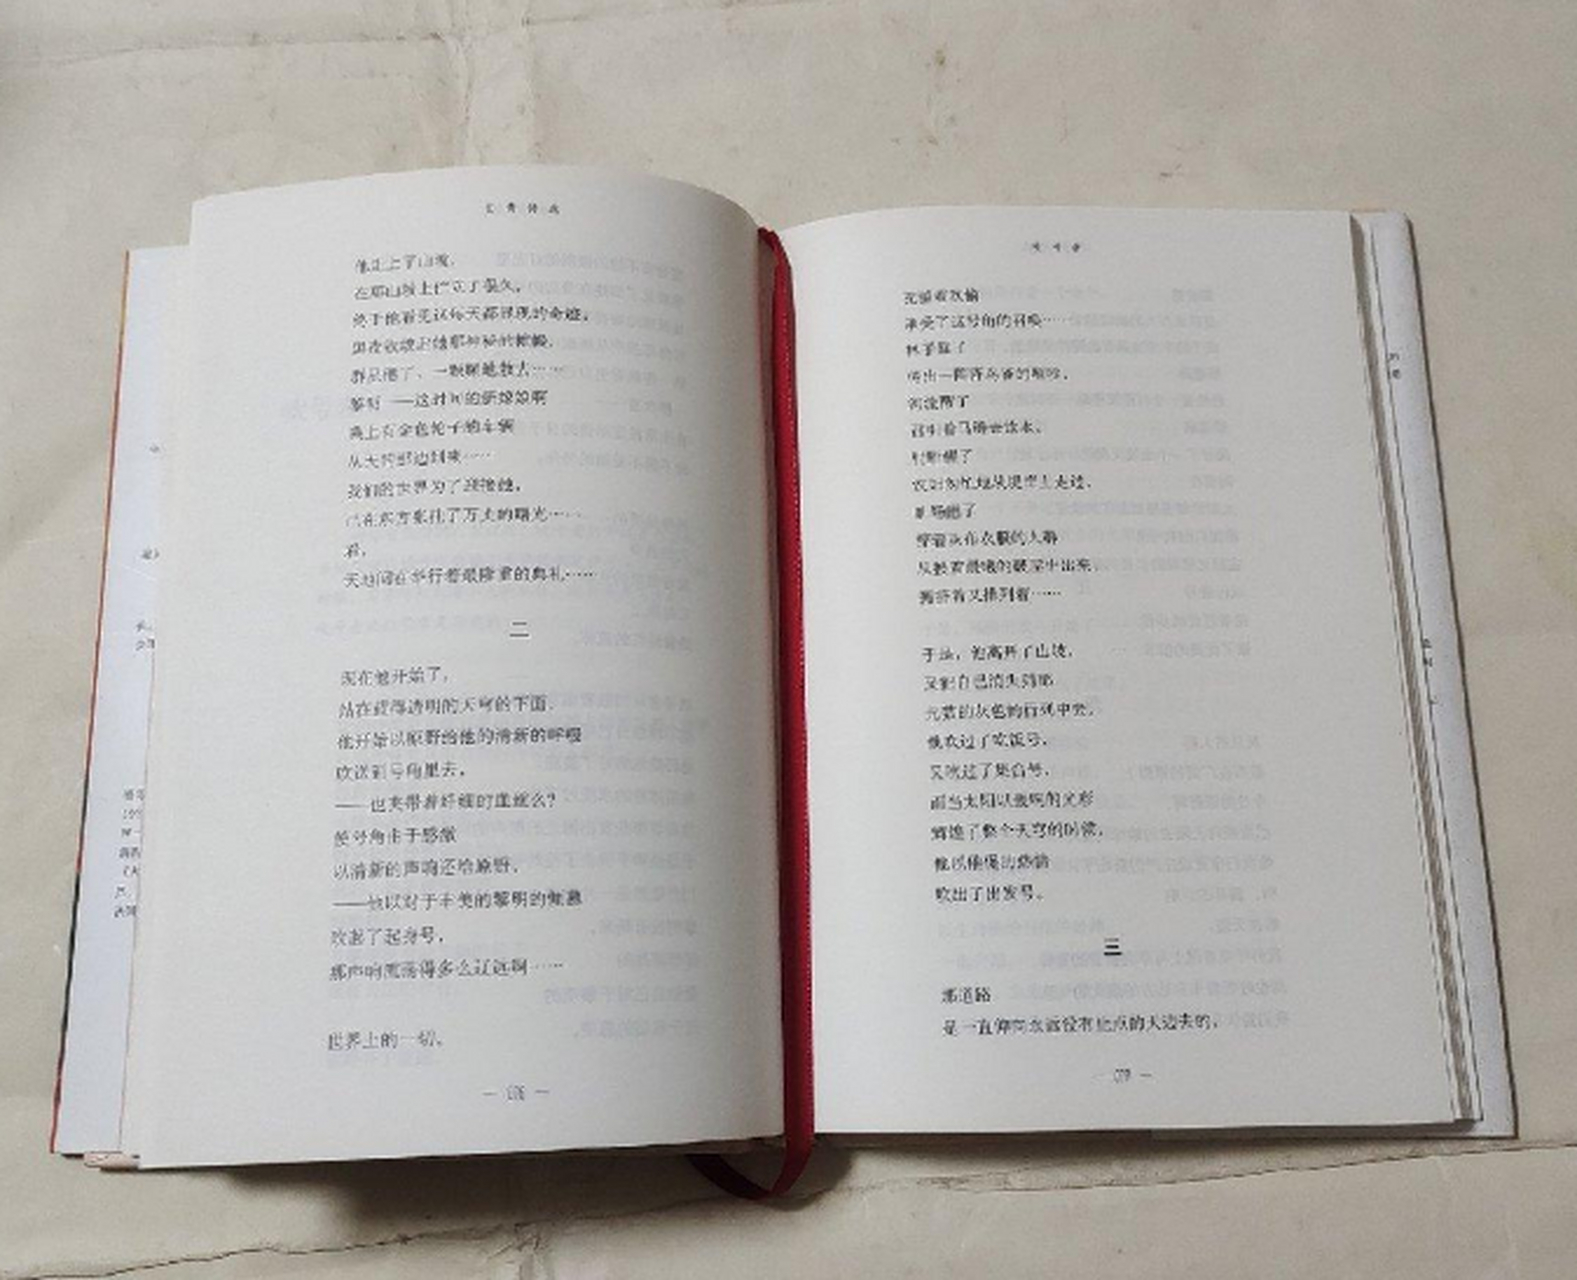 艾青诗选
他走上了山坡，
在那山坡上伫立了很久，
终于他看见这每天都显现的奇迹：
黑夜收敛起她那神秘的帷幔，
群星倦了，一颗颗地散去……
黎明——这时间的新嫁娘啊
乘上有金色轮子的车辆
从天的那边到来……
我们的世界为了迎接她，
已在东方张挂了万丈的曙光……
看，
天地间在举行着最隆重的典礼……
二
现在他开始了，
站在蓝得透明的天穹的下面，
他开始以原野给他的清新的呼吸
吹送到号角里去，
——也夹带着纤细的血丝么？
使号角由于感激
以清新的声响还给原野，
——他以对于丰美的黎明的倾慕
吹起了起身号，
那声响流荡得多么辽远啊……
世界上的一切，
吹号者
充溢着欢愉
承受了这号角的召唤……
林子醒了
传出一阵阵鸟雀的喧吵，
河流醒了
召引着马群去饮水，
村野醒了
农妇匆忙地从堤岸上走过，
旷场醒了
穿着灰布衣服的人群
从披着晨曦的破屋中出来，
拥挤着又排列着……
于是，他离开了山坡，
又把自己消失到那
无数的灰色的行列中去。
他吹过了吃饭号，
又吹过了集合号，
而当太阳以轰响的光彩
辉煌了整个天穹的时候，
他以催促的热情
吹出了出发号。
三
那道路
是一直伸向永远没有止点的天边去的，